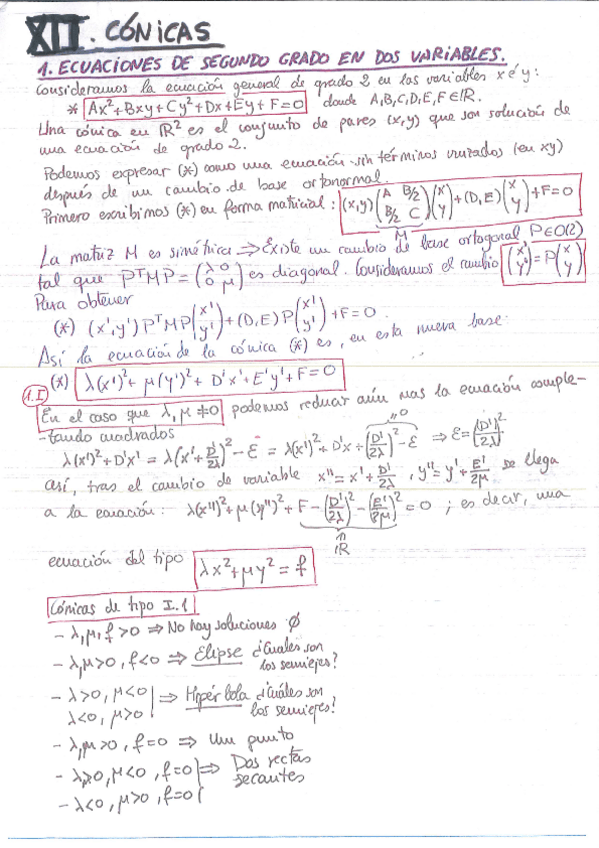 XII. CÓNICAS
1. ECUACIONES DE SEGUNDO GRADO EN DOS VARIABLES.
Consideramos la ecuación general de grado 2 en las variables x é y:
* Ax²+Bxy+Cy²+Dx+Ey+F=0 donde A,B,C,D,E,F ∈ ℝ.
Una cónica en ℝ² es el conjunto de pares (x,y) que son solución de
una ecuación de grado 2.
Podemos expresar (*) como una ecuación sin términos cruzados (en xy)
después de un cambio de base ortonormal.
Primero escribimos (*) en forma matricial: (x,y) (A B/2; B/2 C) (x; y) + (D,E) (x; y) + F = 0
M
La matriz M es simétrica ⇒ Existe un cambio de base ortogonal P∈O(2)
tal que PᵀMP = (λ 0; 0 μ) es diagonal. Consideramos el cambio (x'; y') = P (x; y)
Para obtener
(*) (x',y') PᵀMP (x'; y') + (D,E) P (x'; y') + F = 0.
Así la ecuación de la cónica (*) es, en esta nueva base:
(*) λ(x')² + μ(y')² + D'x' + E'y' + F = 0
1.I
En el caso que λ, μ ≠ 0 podemos reducir aún mas la ecuación comple-
-tando cuadrados
λ(x')² + D'x' = λ(x' + D'/2λ)² - ε = λ(x')² + D'x + (D'/2λ)² - ε ⇒ ε = (D'/2λ)²
así, tras el cambio de variable x'' = x' + D'/2λ, y'' = y' + E'/2μ se llega
a la ecuación: λ(x'')² + μ(y'')² + F - (D'/2λ)² - (E'/2μ)² = 0 ; es decir, una
ℝ
ecuación del tipo λx² + μy² = f
Cónicas de tipo I.1
- λ, μ, f > 0 ⇒ No hay soluciones ∅
- λ, μ > 0, f < 0 ⇒ Elipse ¿Cuales son
los semiejes?
- λ > 0, μ < 0 ⇒ Hipérbola ¿Cuáles son
λ < 0, μ > 0 los semiejes?
- λ, μ > 0, f = 0 ⇒ Un punto
- λ > 0, μ < 0, f = 0 ⇒ Dos rectas
secantes
- λ < 0, μ > 0, f = 0